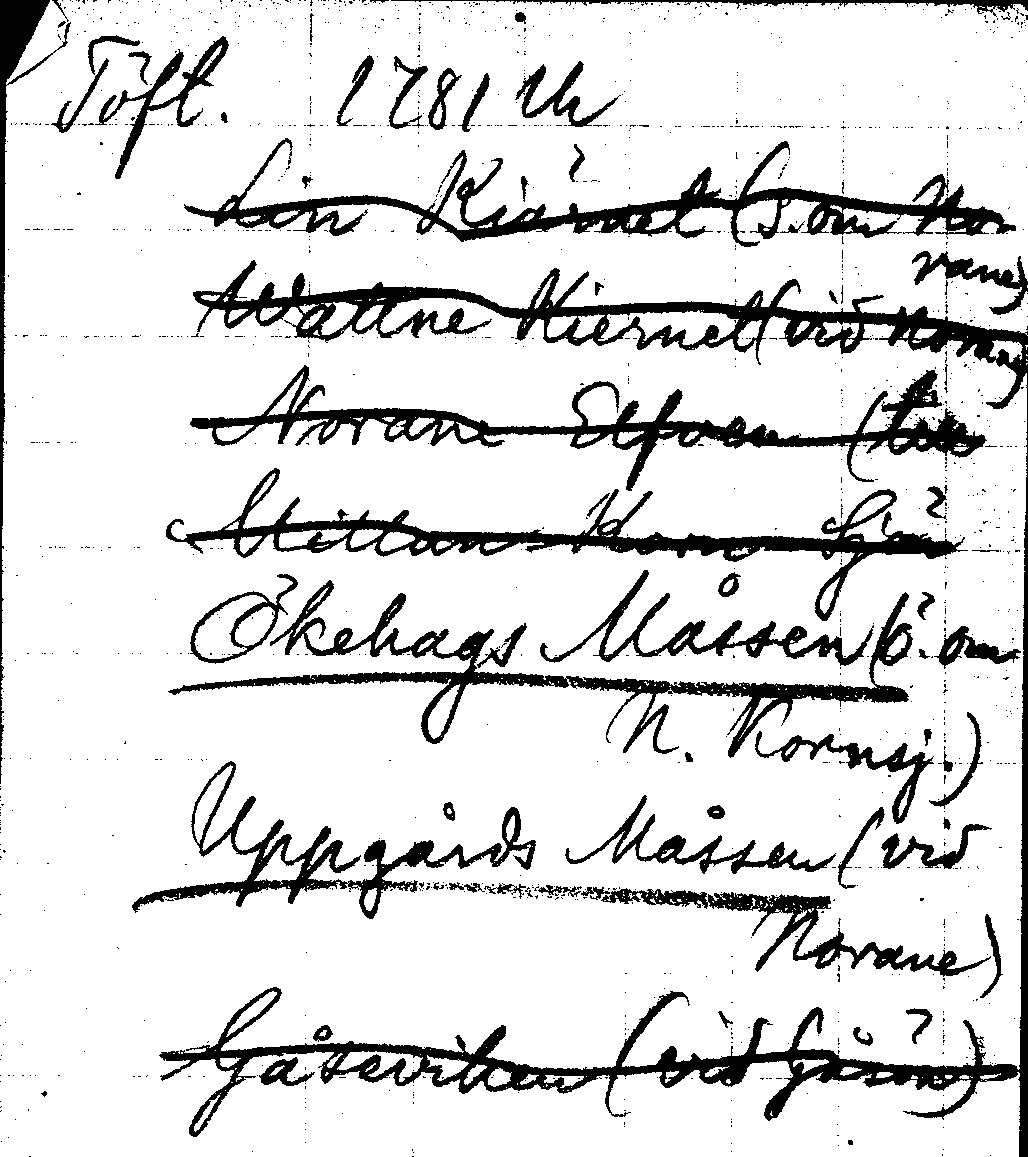 Töft. 1781 Uk
Lin Kiärnet (S. om No-
rane)
Wattne Kiernet (vid Norane)
Norane Elfven (
Mittan Korn Sjön
Ökehags Måssen (ö. om
N. Kornsj.)
Uppgårds Måssen (vid
Norane)
Gåseviken (vid Gåsön)